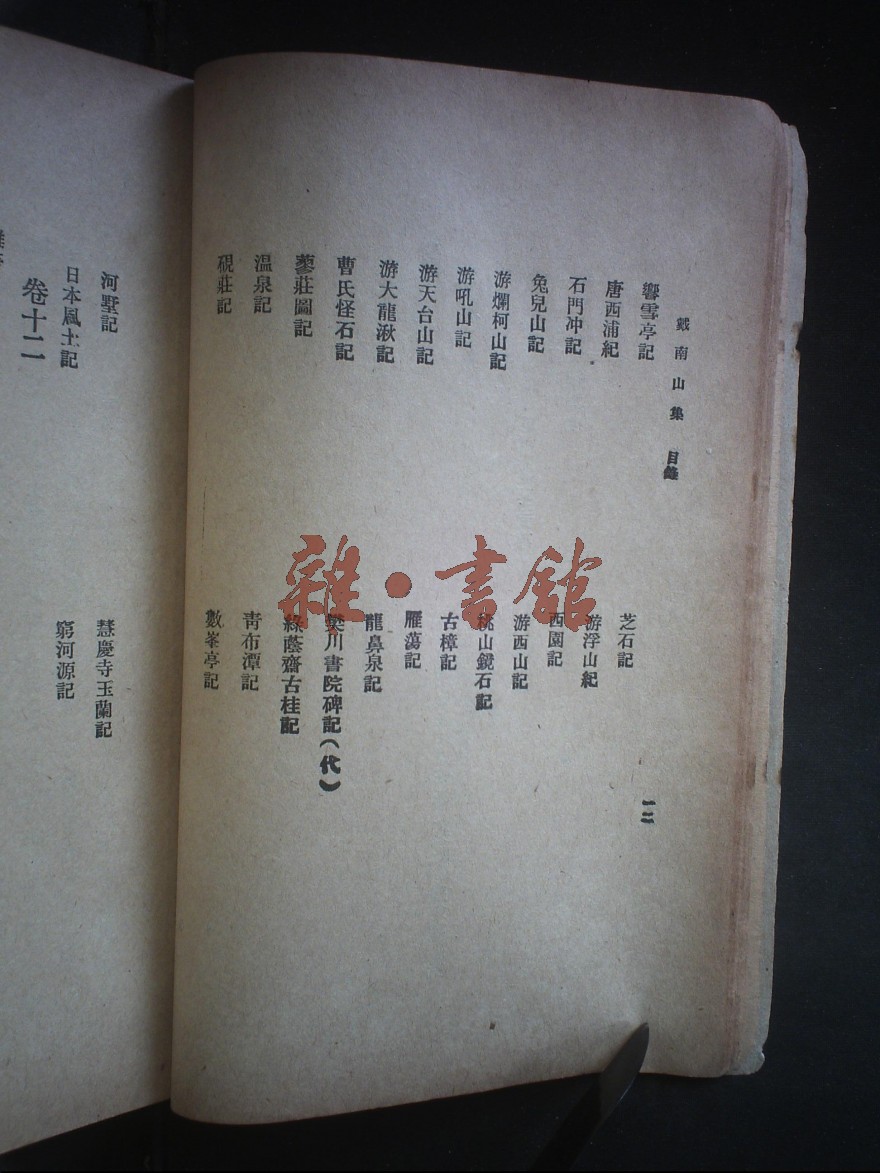 戴南山集 目錄 一二
響雪亭記 芝石記
唐西浦紀 游浮山紀
石門冲記 西園記
兔兒山記 游西山記
游爛柯山記 桃山鏡石記
游吼山記 古樟記
游天台山記 雁蕩記
游大龍湫記 龍鼻泉記
曹氏怪石記 樊川書院碑記（代）
蓼莊圖記 綠蔭齋古桂記
温泉記 青布潭記
硯莊記 數峯亭記
河墅記 慧慶寺玉蘭記
日本風土記 窮河源記
卷十二
雜·書館